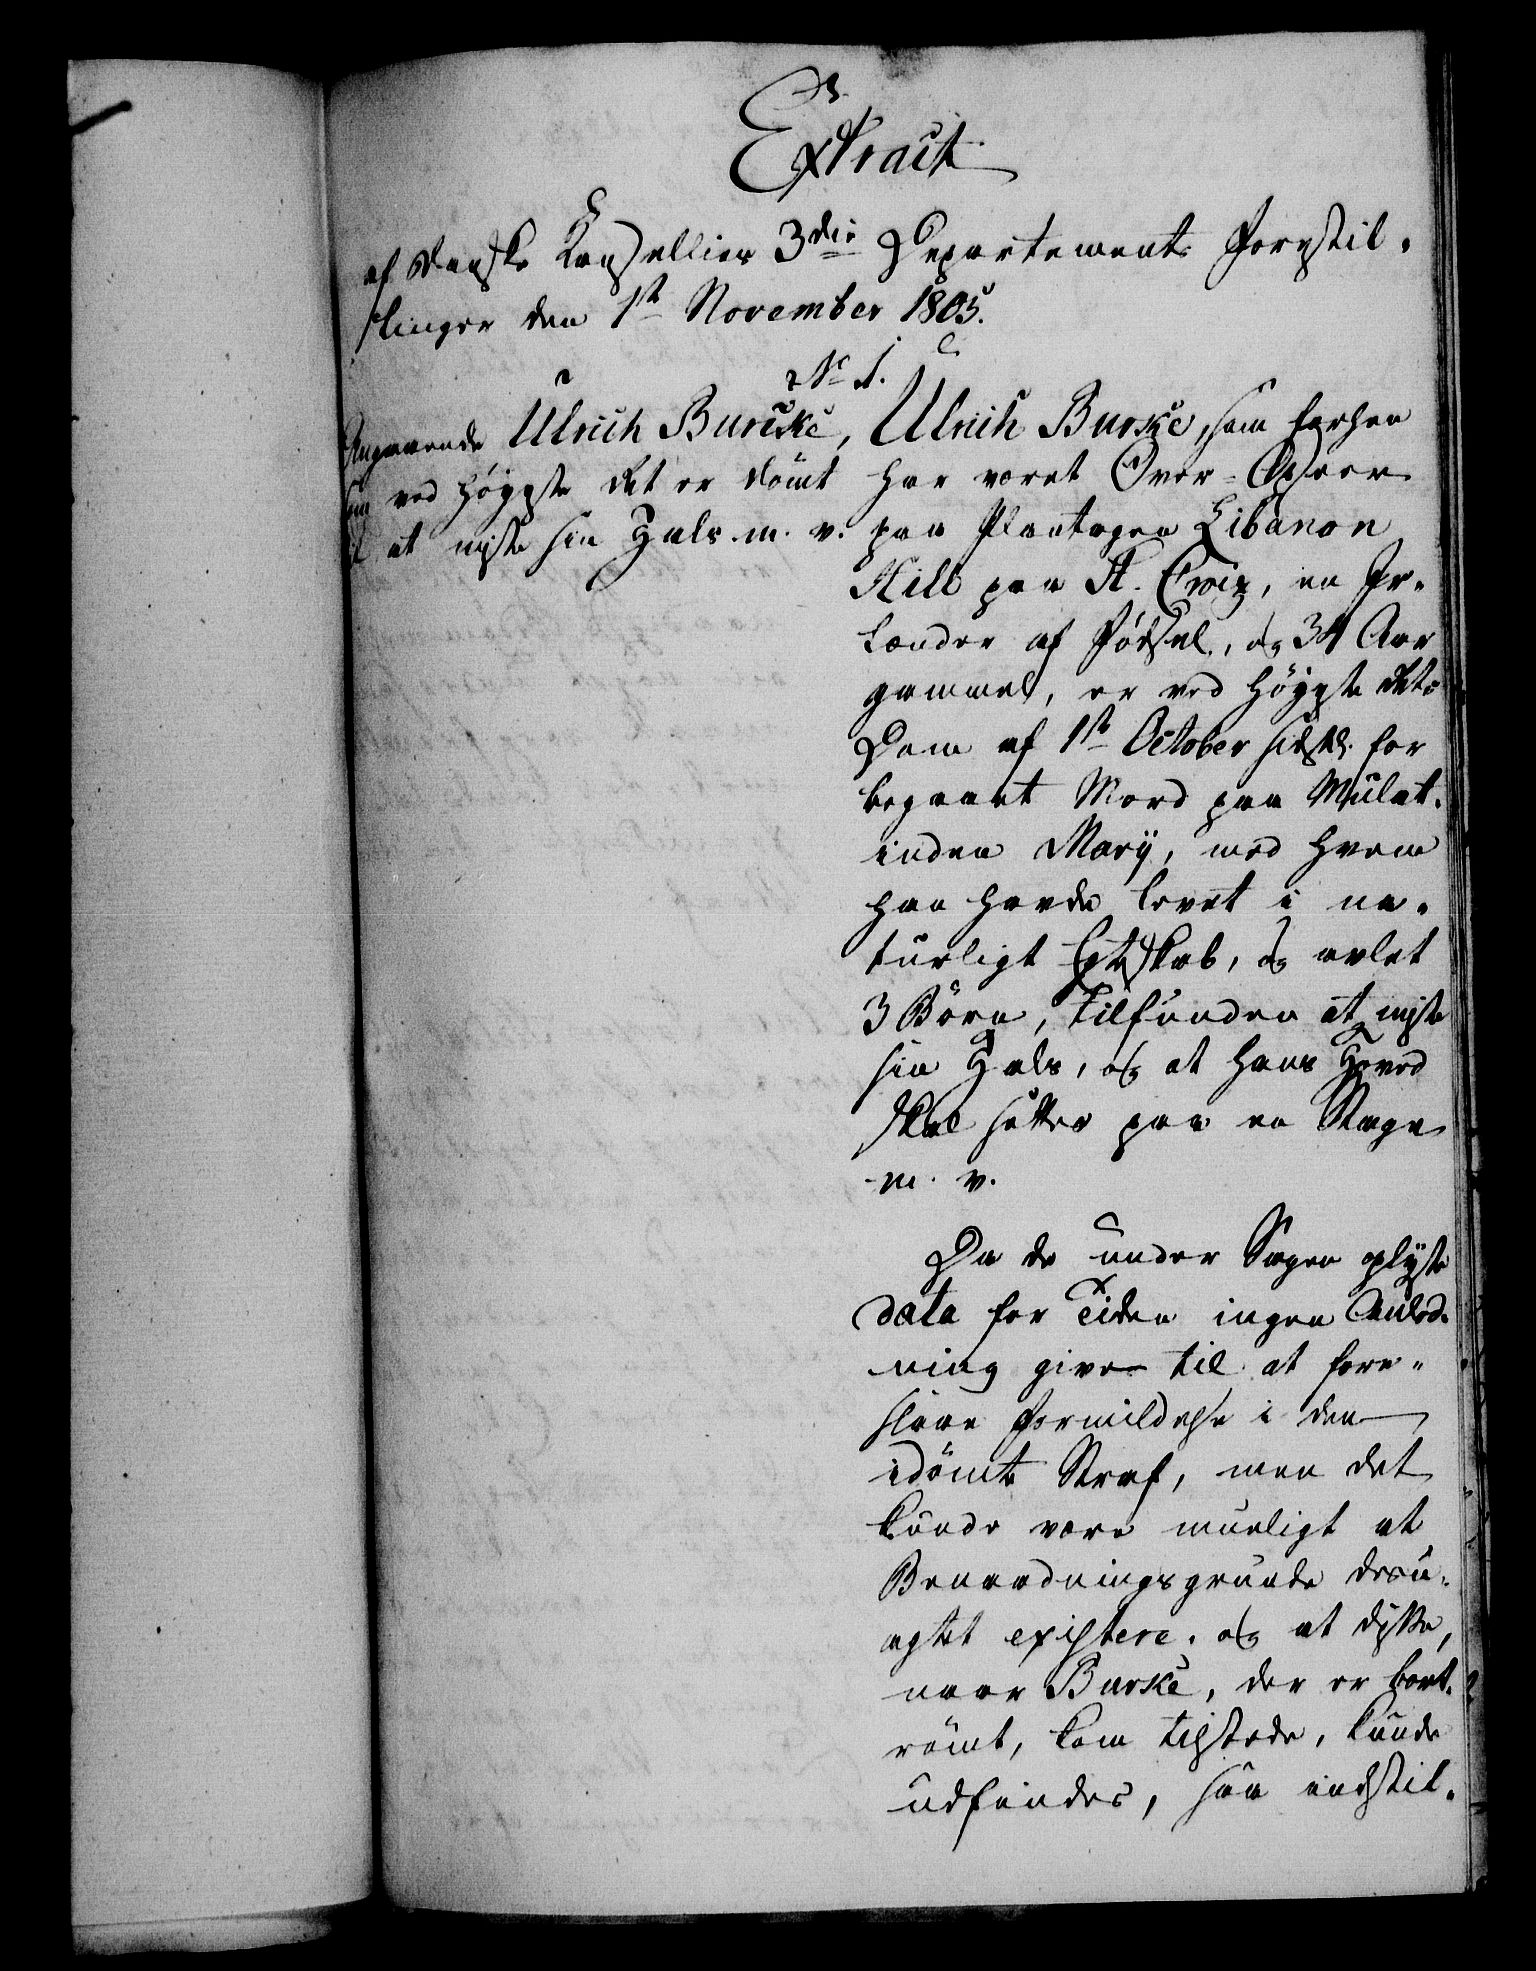 Extract
af Danske Kancelliets 3die Departements Forestil-
linger den 1ste November 1805.
No 1.
Angaaende Ulrich Burcke,
som ved Høyeste Ret er dømt
til at miste sin Hals m. v.
Ulrich Burke, som forhen
har været Over-Opseer
paa Plantagen Libanon
Hill paa St. Croix, en Ir-
lænder af Fødsel, og 34 Aar
gammel, er ved Høyeste Rets
Dom af 1ste October sidstl. for
begaaet Mord paa Mulat-
inden Mary, med hvem
han havde levet i na-
turligt Egteskab, og avlet
3 Börn, tilfunden at miste
sin Hals, og at hans Hoved
skal sættes paa en Stage
m. v.
Da de under Sagen oplyste
data for Tiden ingen Anled-
ning giver til at fore-
slaae Formildelse i den
idømte Straf, men det
kunde være mueligt at
Benaadningsgrunde desu-
agtet existere, og at disse,
naar Burke, der er bort-
römt, kom tilstede, kunde
udfindes, saa indstil-